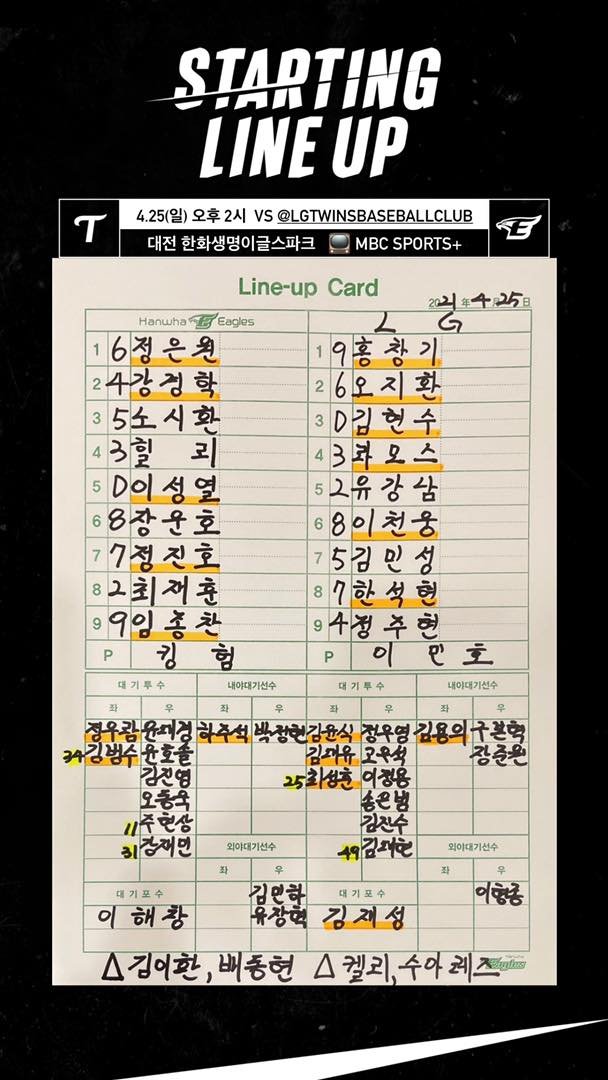 STARTING
LINE UP
T 4.25(일) 오후 2시 VS @LGTWINSBASEBALLCLUB E
대전 한화생명이글스파크 MBC SPORTS+
Line-up Card
2021 년 4 월 25 일
Hanwha E Eagles L G
1 6 정은원 1 9 홍창기
2 4 강경학 2 6 오지환
3 5 노시환 3 D 김현수
4 3 힐 리 4 3 라모스
5 D 이성열 5 2 유강남
6 8 장운호 6 8 이천웅
7 7 정진호 7 5 김민성
8 2 최재훈 8 7 한석현
9 9 임종찬 9 4 정주현
P 킹 험 P 이 민 호
대기투수 내야대기선수 대기투수 내야대기선수
좌 우 좌 우 좌 우 좌 우
정우람 윤대경 하주석 박정현 김윤식 정우영 김용의 구본혁
34 김범수 윤호솔 김대유 고우석 장준원
김진영 25 최성훈 이정용
오동욱 송은범
11 주현상 김진수
31 강재민 외야대기선수 49 김대현 외야대기선수
좌 우 좌 우
대기포수 김민하 대기포수 이형종
이 해 창 유장혁 김 재 성
△김이환,배동현 △켈리,수아레즈 Hanwha Eagles